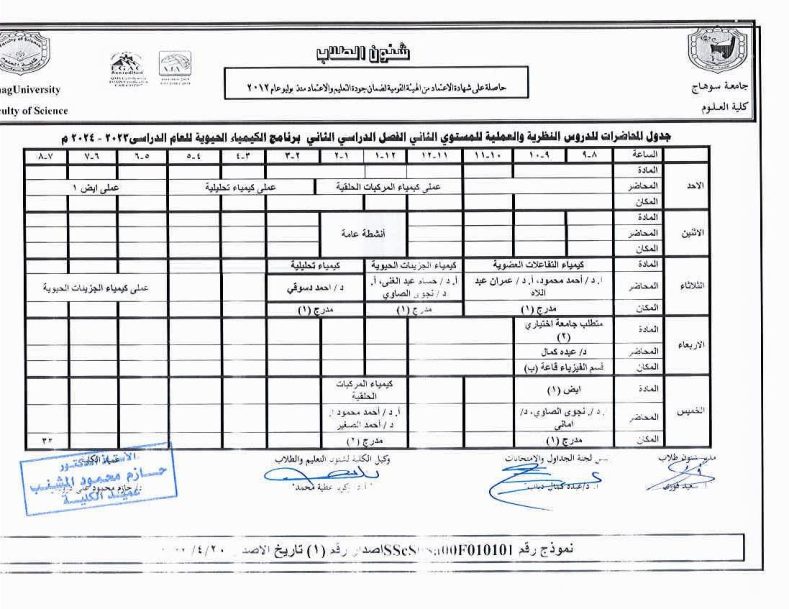 شئون الطلاب
حاصلة على شهادة الاعتماد من الهيئة القومية لضمان جودة التعليم والاعتماد منذ يوليو عام ٢٠١٢
جامعة سوهاج
كلية العلوم
agUniversity
culty of Science
جدول المحاضرات للدروس النظرية والعملية للمستوي الثاني الفصل الدراسي الثاني برنامج الكيمياء الحيوية للعام الدراسى ٢٠٢٣ - ٢٠٢٤ م
الساعة ٨-٩ ٩-١٠ ١٠-١١ ١١-١٢ ١٢-١ ١-٢ ٢-٣ ٣-٤ ٤-٥ ٥-٦ ٦-٧ ٧-٨
الاحد
المادة
المحاضر عملى كيمياء المركبات الحلقية عملى كيمياء تحليلية عملى ايض ١
المكان
الاثنين
المادة
المحاضر أنشطة عامة
المكان
الثلاثاء
المادة كيمياء التفاعلات العضوية كيمياء الجزيئات الحيوية كيمياء تحليلية
المحاضر ا.د/ أحمد محمود، أ.د/ عمران عبد اللاه أ.د/ حساء عبد الغنى، أ.د/ نجوى الصاوي د/ احمد دسوقي عملى كيمياء الجزيئات الحيوية
المكان مدرج (١) مدرج (١) مدرج (١)
الاربعاء
المادة متطلب جامعة اختياري (٢)
المحاضر د/ عبده كمال
المكان قسم الفيزياء قاعة (ب)
الخميس
المادة ايض (١) كيمياء المركبات الحلقية
المحاضر د/ نجوى الصاوي، د/ امانى أ.د/ أحمد محمود د/ أحمد الصغير
المكان مدرج (١) مدرج (٢) ٣٢
مدير شئون طلاب
سعيد فوزى
لجنة الجداول والامتحانات
د/عبده كمال
وكيل الكلية لشئون التعليم والطلاب
عطية محمد
الكلية
د/ حازم محمود
الاستاذ الدكتور
حازم محمود المشنب
عميد الكلية
نموذج رقم 00F010101 اصدار رقم (١) تاريخ الاصد